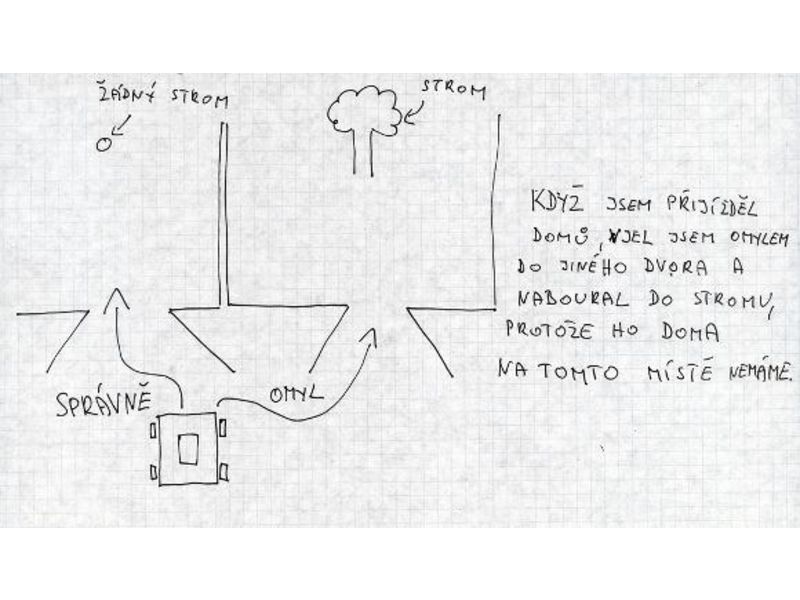 ŽÁDNÝ STROM
STROM
KDYŽ JSEM PŘIJÍŽDĚL
DOMŮ, VJEL JSEM OMYLEM
DO JINÉHO DVORA A
NABOURAL DO STROMU,
PROTOŽE HO DOMA
NA TOMTO MÍSTĚ NEMÁME.
SPRÁVNĚ
OMYL